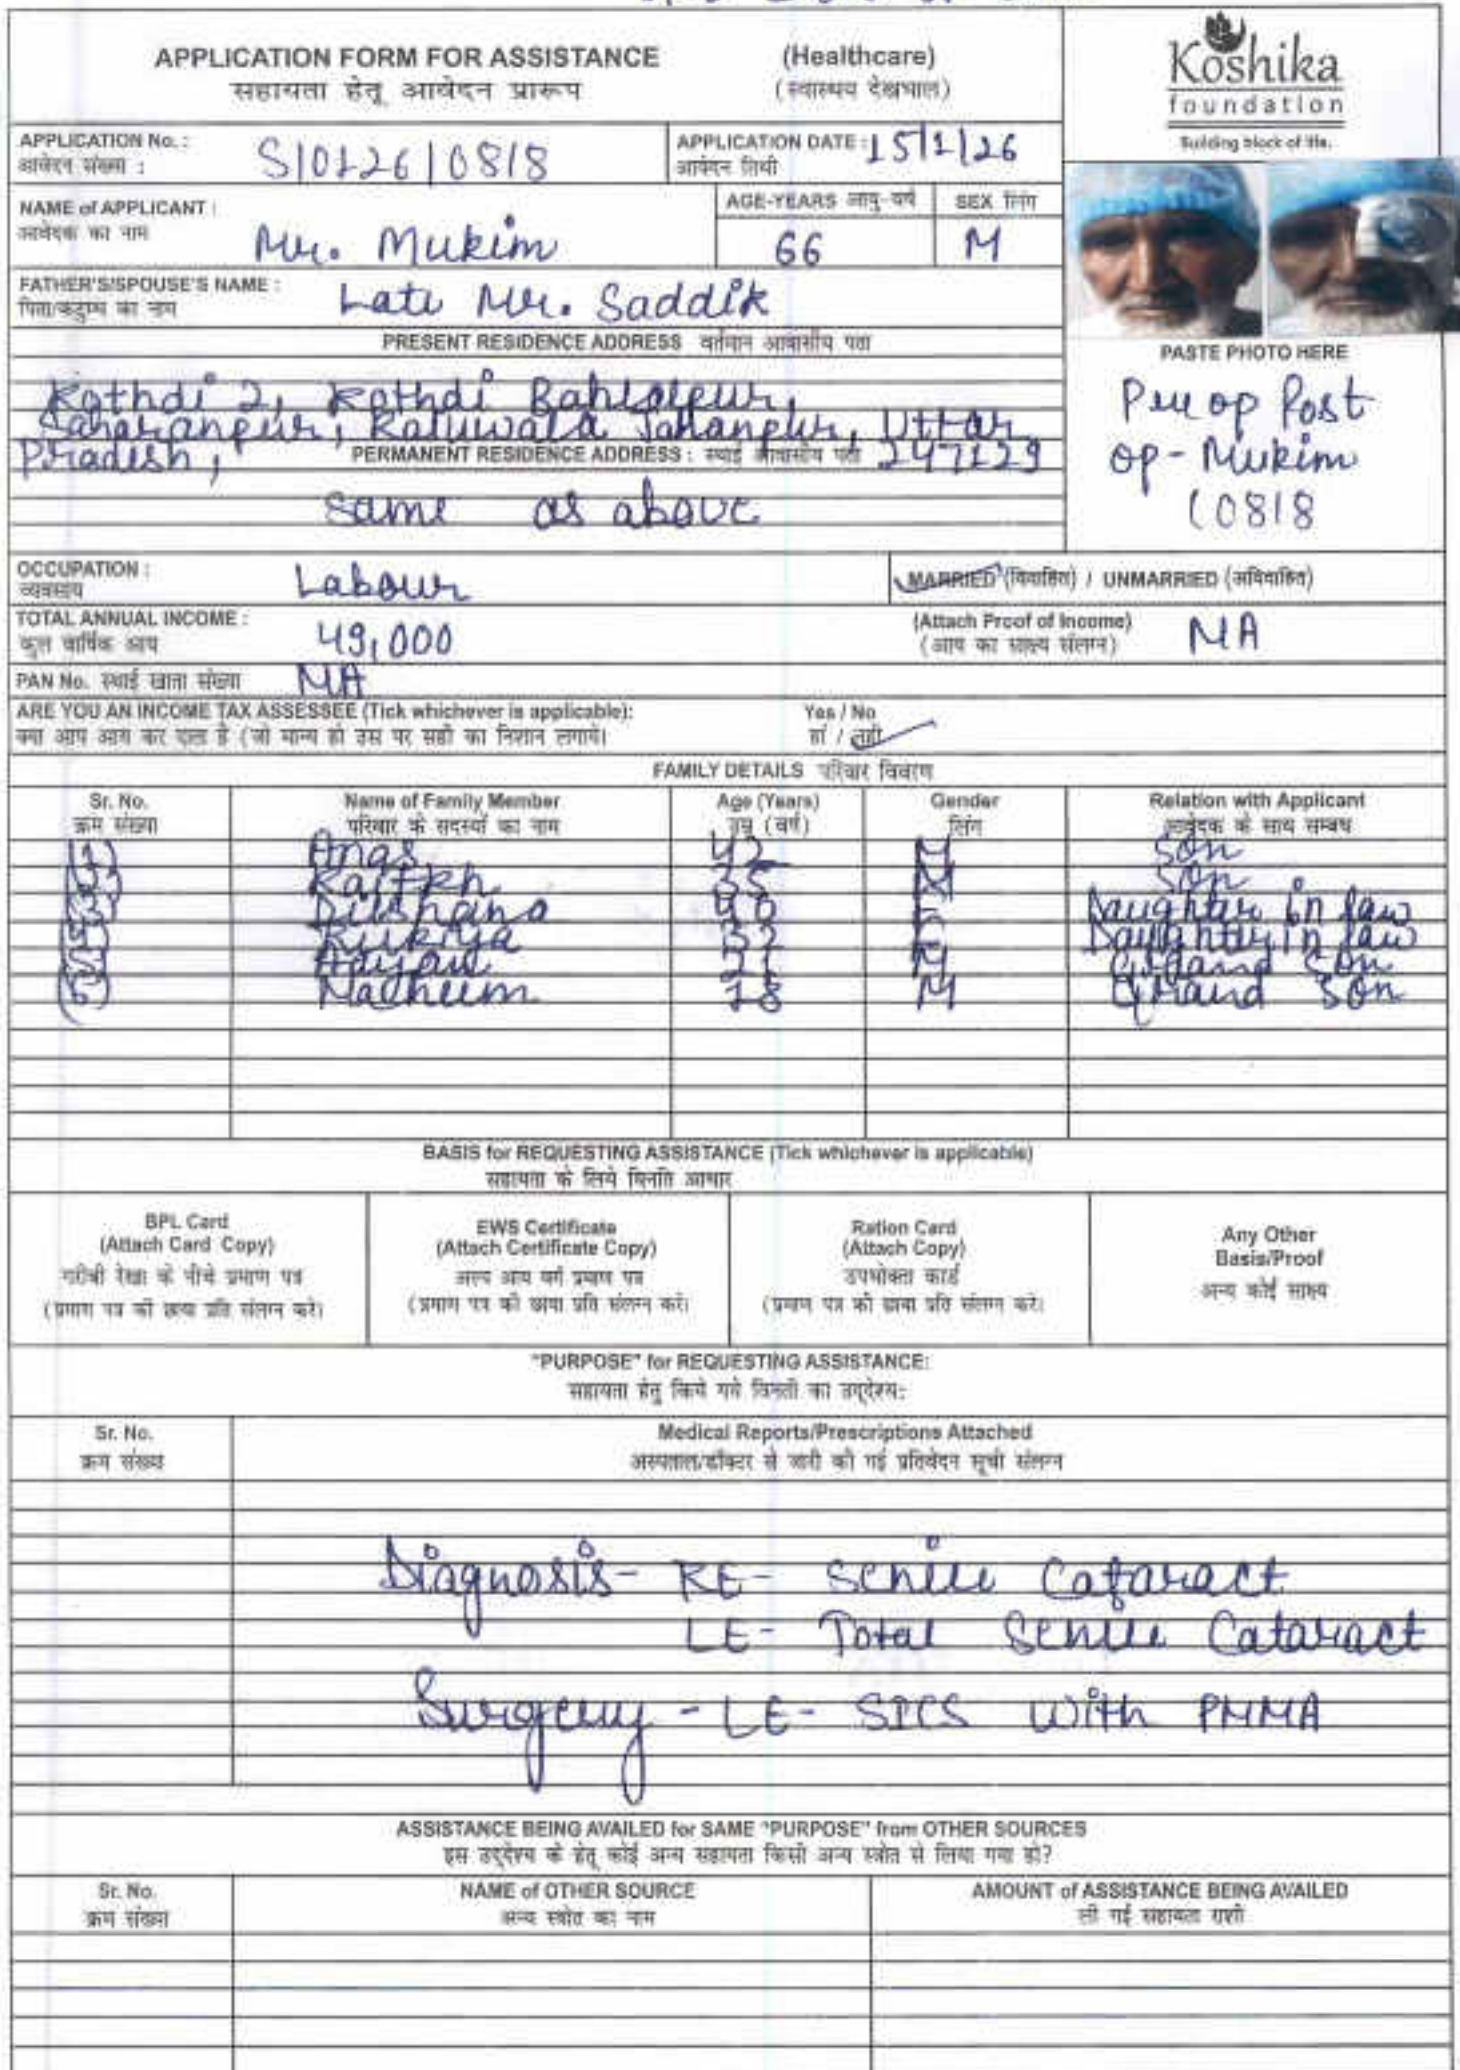 APPLICATION FORM FOR ASSISTANCE (Healthcare)
सहायता हेतू आवेदन प्रारूप (स्वास्थय देखभाल)
Koshika
foundation
Building block of life.
APPLICATION No. : S/0126/0818 APPLICATION DATE : 15/1/26
आवेदन संख्या : आवेदन तिथी
NAME of APPLICANT : Mr. Mukim AGE-YEARS आयु-वर्ष 66 SEX लिंग M
आवेदक का नाम
FATHER'S/SPOUSE'S NAME : Late Mr. Saddik
पिता/कटुम्ब का नाम
PRESENT RESIDENCE ADDRESS वर्तमान आवासीय पता
Kathdi 2, Kathdi
Saharanpur, Uttar
Pradesh, 247129
PERMANENT RESIDENCE ADDRESS : स्थाई आवासीय पता
same as above
PASTE PHOTO HERE
Pre op Post
op - Mukim
(0818
OCCUPATION : Labour MARRIED (विवाहित) / UNMARRIED (अविवाहित)
व्यवसाय
TOTAL ANNUAL INCOME : 49,000 (Attach Proof of Income) NA
कुल वार्षिक आय (आय का साक्ष्य संलग्न)
PAN No. स्थाई खाता संख्या NA
ARE YOU AN INCOME TAX ASSESSEE (Tick whichever is applicable): Yes / No
क्या आप आय कर दाता है (जो मान्य हो उस पर सही का निशान लगाये। हां / नही
FAMILY DETAILS परिवार विवरण
Sr. No. Name of Family Member Age (Years) Gender Relation with Applicant
क्रम संख्या परिवार के सदस्यों का नाम उम्र (वर्ष) लिंग आवेदक के साथ सम्बध
(1) Anas 42 M Son
(2) 35 M Son
(3) Dilshana 40 F Daughter in law
(4) Rukiya 32 F Daughter in law
(5) 21 M Grand Son
(6) 18 M Grand Son
BASIS for REQUESTING ASSISTANCE (Tick whichever is applicable)
सहायता के लिये विनति आधार
BPL Card
(Attach Card Copy)
गरीबी रेखा के नीचे प्रमाण पत्र
(प्रमाण पत्र की छाया प्रति संलग्न करे।
EWS Certificate
(Attach Certificate Copy)
अल्प आय वर्ग प्रमाण पत्र
(प्रमाण पत्र की छाया प्रति संलग्न करे।
Ration Card
(Attach Copy)
उपभोक्ता कार्ड
(प्रमाण पत्र की छाया प्रति संलग्न करे।
Any Other
Basis/Proof
अन्य कोई साक्ष्य
"PURPOSE" for REQUESTING ASSISTANCE:
सहायता हेतु किये गये विनती का उद्देश्य:
Sr. No. Medical Reports/Prescriptions Attached
क्रम संख्या अस्पताल/डॉक्टर से जारी की गई प्रतिवेदन सूची संलग्न
Diagnosis- RE- Senile Cataract
LE- Total Senile Cataract
Surgery - LE- SICS with PMMA
ASSISTANCE BEING AVAILED for SAME "PURPOSE" from OTHER SOURCES
इस उद्देश्य के हेतू कोई अन्य सहायता किसी अन्य स्त्रोत से लिया गया हो?
Sr. No. NAME of OTHER SOURCE AMOUNT of ASSISTANCE BEING AVAILED
क्रम संख्या अन्य स्त्रोत का नाम ली गई सहायता राशी